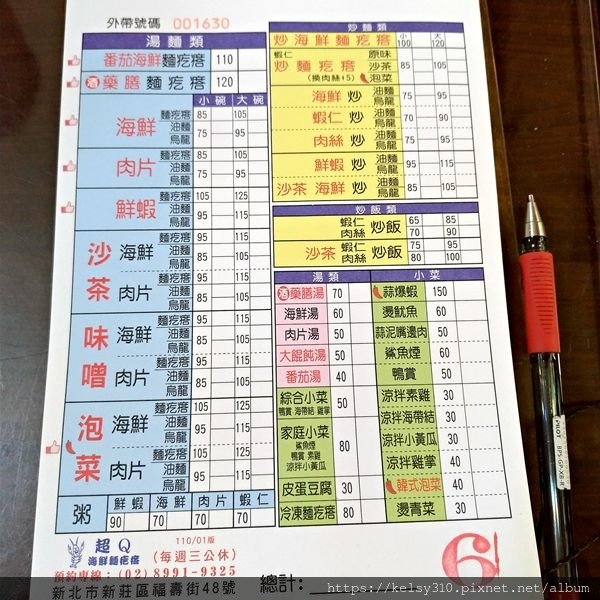 外帶號碼 001630
湯麵類
番茄海鮮麵疙瘩 110
酒 藥膳 麵疙瘩 120
小碗 大碗
海鮮 麵疙瘩 85 105
油麵 烏龍 75 95
肉片 麵疙瘩 85 105
油麵 烏龍 75 95
鮮蝦 麵疙瘩 105 125
油麵 烏龍 95 115
沙茶 海鮮 麵疙瘩 95 115
油麵 烏龍 85 105
肉片 麵疙瘩 95 115
油麵 烏龍 85 105
味噌 海鮮 麵疙瘩 95 115
油麵 烏龍 85 105
肉片 麵疙瘩 95 115
油麵 烏龍 85 105
泡菜 海鮮 麵疙瘩 105 125
油麵 烏龍 95 115
肉片 麵疙瘩 105 125
油麵 烏龍 95 115
粥 鮮蝦 海鮮 肉片 蝦仁
90 70 70 70
炒麵類
炒海鮮麵疙瘩 小100 大120
蝦仁 炒麵疙瘩 (換肉絲+5)
原味 沙茶 泡菜 85 105
海鮮 炒 油麵 烏龍 75 95
蝦仁 炒 油麵 烏龍 75 95
肉絲 炒 油麵 烏龍 75 95
鮮蝦 炒 油麵 烏龍 95 115
沙茶 海鮮 炒 油麵 烏龍 85 105
炒飯類
蝦仁 炒飯 65 85
肉絲 炒飯 70 90
沙茶 蝦仁 炒飯 75 95
肉絲 炒飯 80 100
湯類
酒 藥膳湯 70
海鮮湯 60
肉片湯 50
大餛飩湯 50
番茄湯 40
綜合小菜 50
鴨賞 海帶結 雞掌
家庭小菜 80
鯊魚煙
鴨賞 素雞
涼拌小黃瓜
皮蛋豆腐 30
冷凍麵疙瘩 80
小菜
蒜爆蝦 150
燙魷魚 60
蒜泥嘴邊肉 50
鯊魚煙 60
鴨賞 50
涼拌素雞 30
涼拌海帶結 30
涼拌小黃瓜 30
涼拌雞掌 40
韓式泡菜 40
燙青菜 30
110/01版
超Q
海鮮麵疙瘩
(每週三公休)
預約專線：(02) 8991-9325
新北市新莊區福壽街48號
總計：
61
PILOT
BPS-GP-XB-R
https://kelsy310.pixnet.net/album